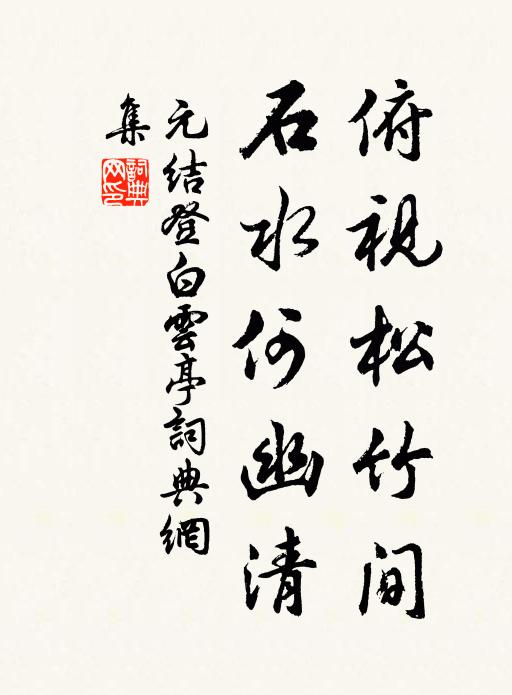 俯視松竹间
石水何幽清
元结登白雲亭詞典網
集
詞典网印